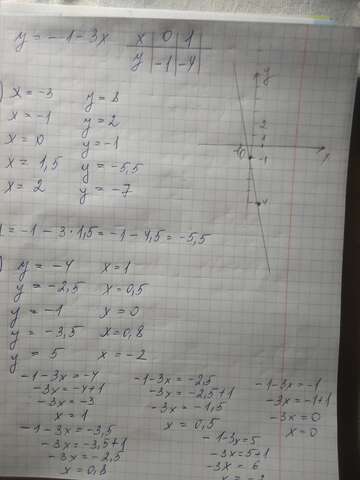 y = -1-3x
x 0 1
y -1 -4
) x = -3 y = 8
x = -1 y = 2
x = 0 y = -1
x = 1,5 y = -5,5
x = 2 y = -7
y
2
1
0
-1
x
= -1-3·1,5 = -1-4,5 = -5,5
) y = -4 x = 1
y = -2,5 x = 0,5
y = -1 x = 0
y = -3,5 x = 0,8
y = 5 x = -2
-1-3x = -4
-3x = -4+1
-3x = -3
x = 1
-1-3x = -2,5
-3x = -2,5+1
-3x = -1,5
x = 0,5
-1-3x = -1
-3x = -1+1
-3x = 0
x = 0
-1-3x = -3,5
-3x = -3,5+1
-3x = -2,5
x = 0,8
-1-3x = 5
-3x = 5+1
-3x = 6
x = -2